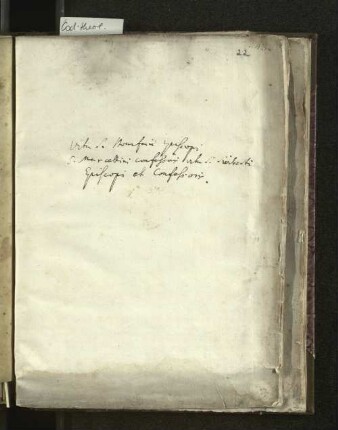 Cod. theol.
22
Vita S. Bonifacii Episcopi
S. Marcellini confessoris vita S.
Episcopi et Confessoris.